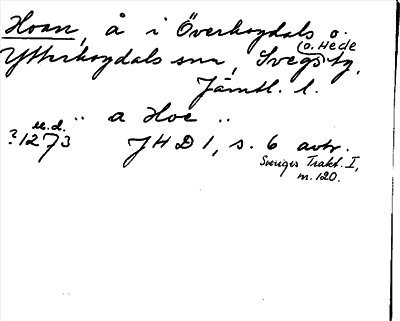 Hoan, å i Överhogdals o.
Ytterhogdals snr, Svegs (o. Hede) tg,
Jämtl. l.
.. a Hoe ..
u.d.
?1273 JHD 1, s. 6 avtr.
Sveriges Trakt. I,
nr. 120.